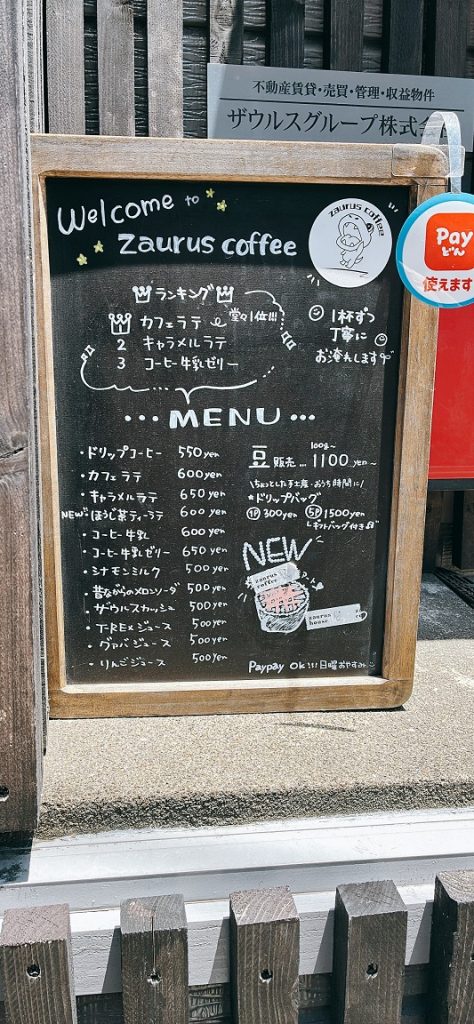 不動産賃貸・売買・管理・収益物件
ザウルスグループ株式会
Welcome to
zaurus coffee
zaurus coffee
Pay
どん
使えます
ランキング
カフェラテ
堂々1位!!!
2 キャラメルラテ
3 コーヒー牛乳ゼリー
1杯ずつ
丁寧に
お淹れします
...MENU...
・ドリップコーヒー 550yen
・カフェラテ 600yen
・キャラメルラテ 650yen
NEW ほうじ茶ティーラテ 600yen
・コーヒー牛乳 600yen
・コーヒー牛乳ゼリー 650yen
・シナモンミルク 500yen
・昔ながらのメロンソーダ 500yen
・ザウルスカッシュ 500yen
・T-REXジュース 500yen
・グァバジュース 500yen
・りんごジュース 500yen
100g〜
豆 販売 ... 1100 yen〜
\ちょっとした手土産・おうち時間に/
*ドリップバッグ
1P 300yen 5P 1500yen
ギフトバッグ付き
NEW
zaurus
coffee
zaurus
house
Paypay OK!!! 日曜おやすみ